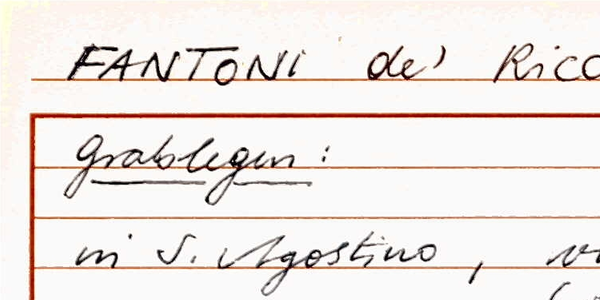 FANTONI de' Ricc
Grablegen:
in S. Agostino,